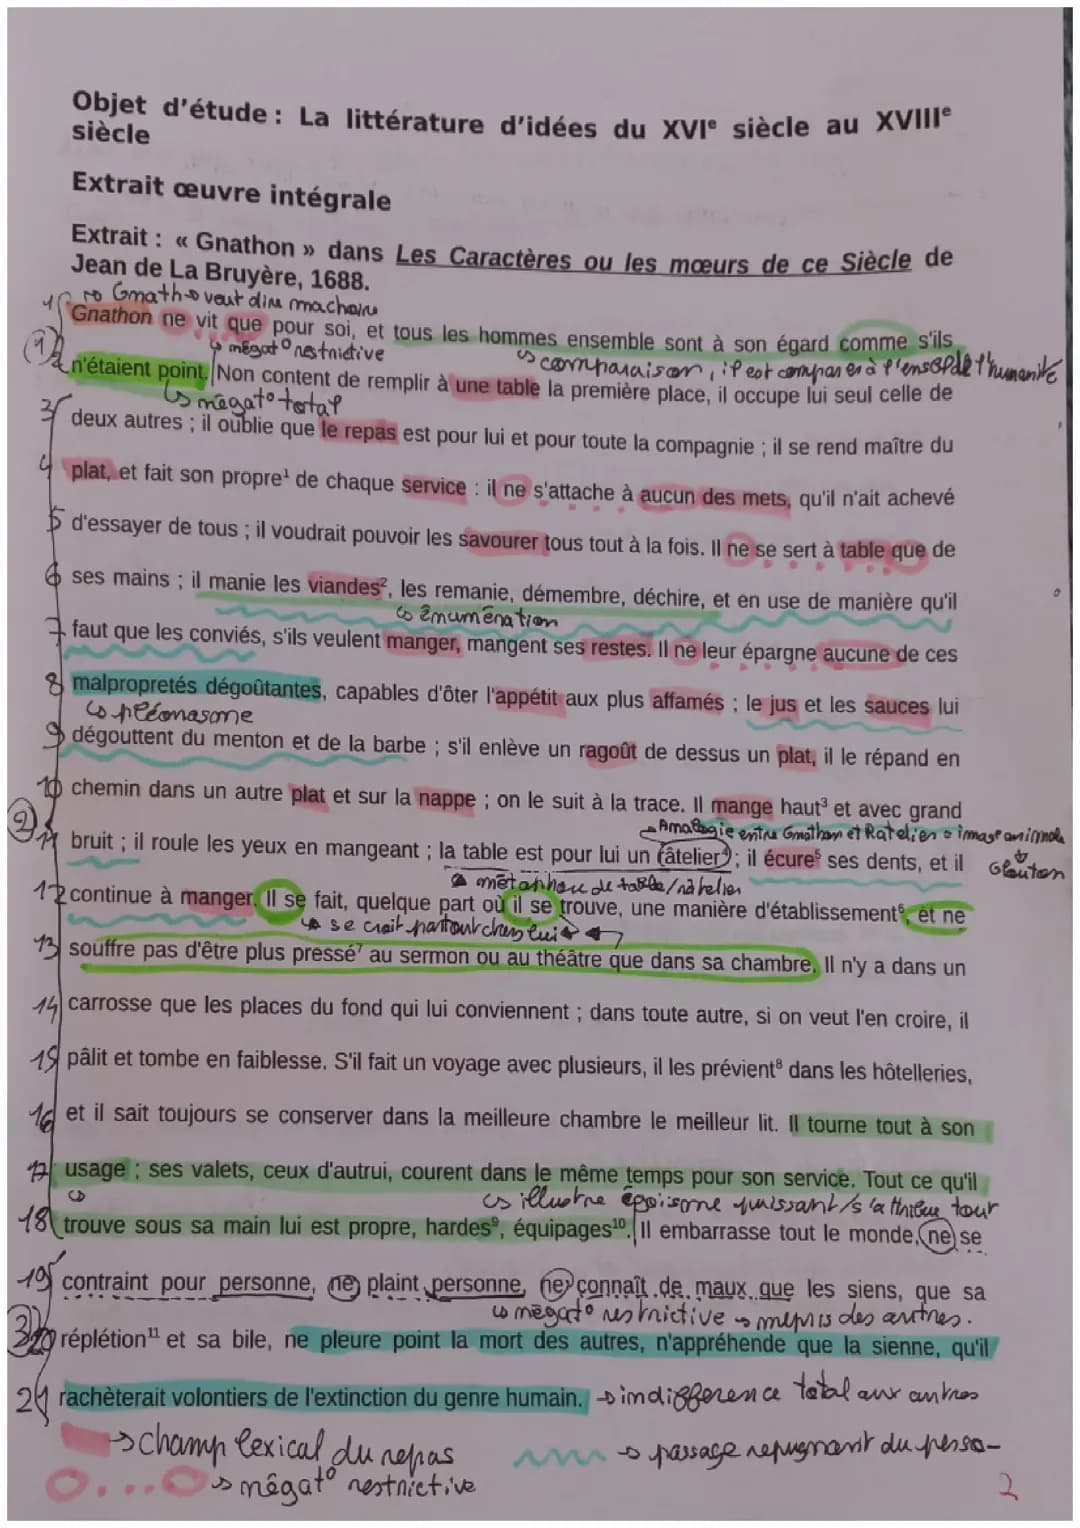 Objet d'étude : La littérature d'idées du XVIe siècle au XVIIIe
siècle
Extrait œuvre intégrale
Extrait : « Gnathon » dans Les Caractères ou les mœurs de ce Siècle de
Jean de La Bruyère, 1688.
→ Gnath → veut dire machoire
1 Gnathon ne vit que pour soi, et tous les hommes ensemble sont à son égard comme s'ils
↳ négat° restrictive
↳ comparaison, il est comparer à l'ens de l'humanité
1
2 n'étaient point. Non content de remplir à une table la première place, il occupe lui seul celle de
↳ négat° total
3 deux autres ; il oublie que le repas est pour lui et pour toute la compagnie ; il se rend maître du
4 plat, et fait son propre¹ de chaque service : il ne s'attache à aucun des mets, qu'il n'ait achevé
5 d'essayer de tous ; il voudrait pouvoir les savourer tous tout à la fois. Il ne se sert à table que de
6 ses mains ; il manie les viandes², les remanie, démembre, déchire, et en use de manière qu'il
↳ énumération
7 faut que les conviés, s'ils veulent manger, mangent ses restes. Il ne leur épargne aucune de ces
8 malpropretés dégoûtantes, capables d'ôter l'appétit aux plus affamés ; le jus et les sauces lui
↳ pléonasme
9 dégouttent du menton et de la barbe ; s'il enlève un ragoût de dessus un plat, il le répand en
10 chemin dans un autre plat et sur la nappe ; on le suit à la trace. Il mange haut³ et avec grand
2
→ Analogie entre Gnathon et Ratelier → image animale
↓
Glouton
11 bruit ; il roule les yeux en mangeant ; la table est pour lui un râtelier⁴ ; il écure⁵ ses dents, et il
métaphore de table/râtelier
12 continue à manger. Il se fait, quelque part où il se trouve, une manière d'établissement⁶, et ne
↳ se croit partout chez lui
13 souffre pas d'être plus pressé⁷ au sermon ou au théâtre que dans sa chambre. Il n'y a dans un
14 carrosse que les places du fond qui lui conviennent ; dans toute autre, si on veut l'en croire, il
15 pâlit et tombe en faiblesse. S'il fait un voyage avec plusieurs, il les prévient⁸ dans les hôtelleries,
16 et il sait toujours se conserver dans la meilleure chambre le meilleur lit. Il tourne tout à son
17 usage ; ses valets, ceux d'autrui, courent dans le même temps pour son service. Tout ce qu'il
↳ illustre égoisme puissant/s'attribue tout
18 trouve sous sa main lui est propre, hardes⁹, équipages¹⁰. Il embarrasse tout le monde, ne se
19 contraint pour personne, ne plaint personne, ne connaît de maux que les siens, que sa
↳ négat° restrictive → mépris des autres.
3
20 réplétion¹¹ et sa bile, ne pleure point la mort des autres, n'appréhende que la sienne, qu'il
21 rachèterait volontiers de l'extinction du genre humain. → indifférence total aux autres
→ champ lexical du repas
→ passage repugnant du perso-
→ négat° restrictive
2